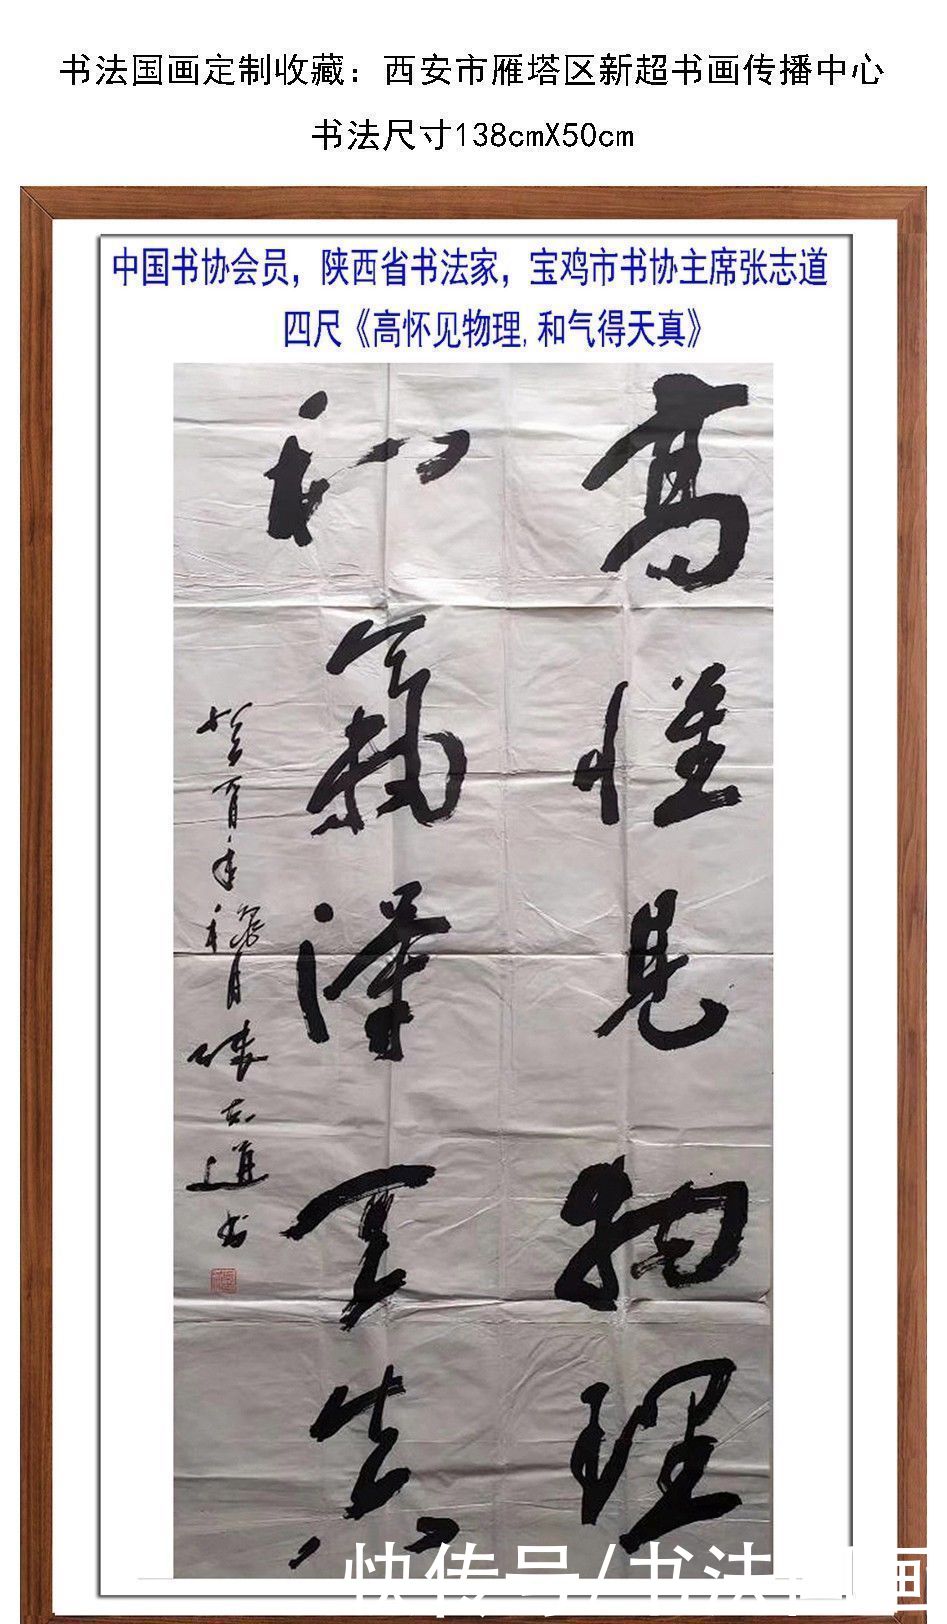 书法国画定制收藏：西安市雁塔区新超书画传播中心
书法尺寸138cmX50cm
中国书协会员，陕西省书法家，宝鸡市书协主席张志道
四尺《高怀见物理,和气得天真》
高懷見物理
和氣得天真
癸酉年月張志道书
快传号/书法国画